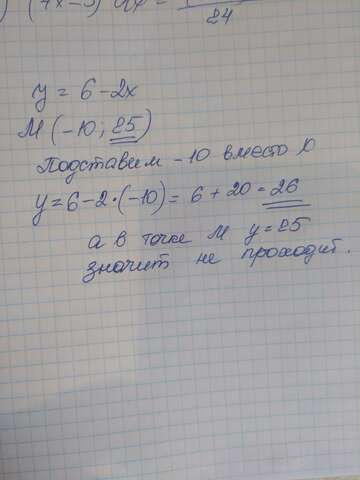 24
y = 6 - 2x
M (-10; 25)
Подставим -10 вместо x
y = 6 - 2·(-10) = 6 + 20 = 26
а в точке M y = 25
значит не проходит.